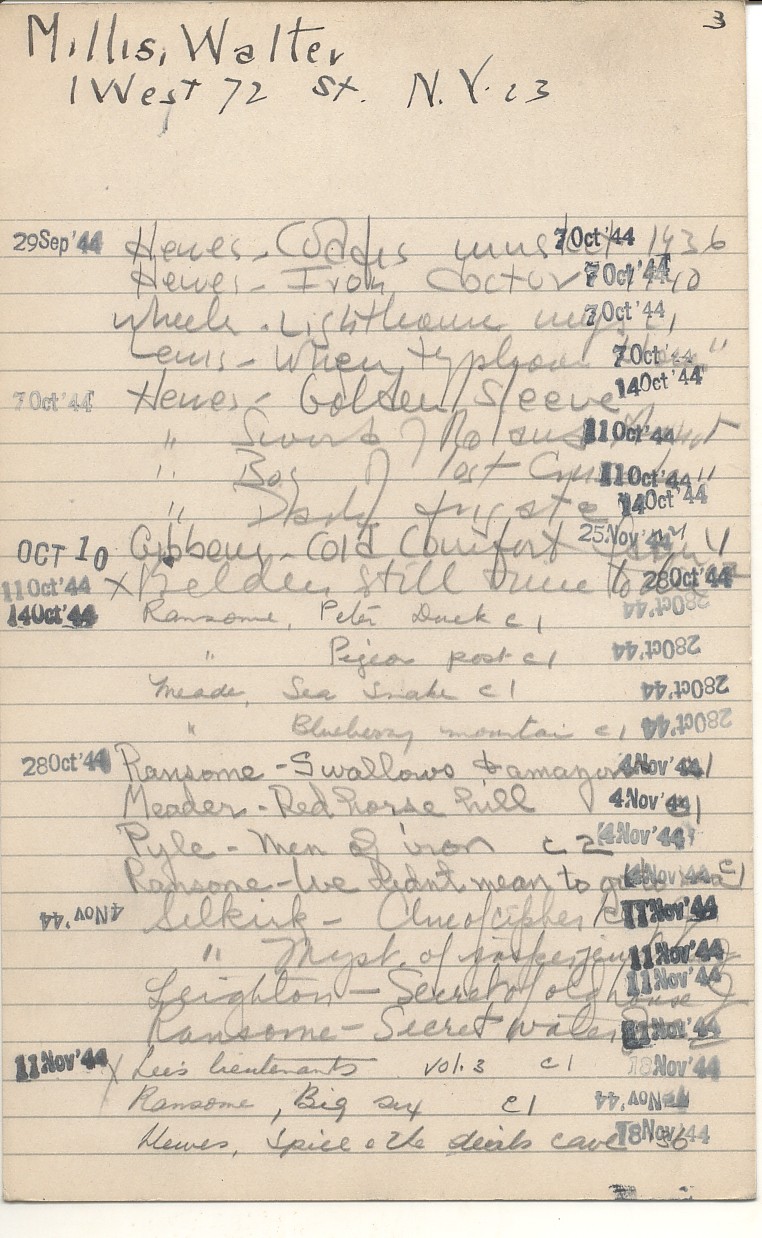 3
Millis, Walter
1 West 72 St. N.Y. 23
29 Sep '44 Hewes - Codfish musket 7 Oct '44 1936
Hewes - Iron doctor 7 Oct '44 1940
Wheele - Lighthouse mys c1 7 Oct '44
Lewis - When typhoon 7 Oct '44 "
7 Oct '44 Hewes - Golden Sleeve 14 Oct '44
" Sword of Roland 11 Oct '44
" Boy of lost 11 Oct '44 "
" 14 Oct '44
OCT 10 Gibbons - Cold Comfort 25 Nov '44
11 Oct '44 x Belden Still time to 28 Oct '44
14 Oct '44 Ransome, Peter Duck c1 28 Oct '44
" Pigeon post c1 28 Oct '44
Meade, Sea Snake c1 28 Oct '44
" Blueberry mountain c1 28 Oct '44
28 Oct '44 Ransome - Swallows & amazons 4 Nov '44 c1
Meader - Red horse hill 4 Nov '44 c1
Pyle - Men of iron c2 4 Nov '44
Ransome - We didnt mean to go to sea 4 Nov '44 c1
4 Nov '44 Selkirk - Clue of cipher 11 Nov '44
" Myst. of 11 Nov '44
Leighton - Secret of old house 11 Nov '44
Ransome - Secret water 11 Nov '44
11 Nov '44 x Lee's lieutenants vol. 3 c1 18 Nov '44
Ransome, Big six c1 Nov '44
Hewes, Spice & the devils cave 18 Nov '44 36